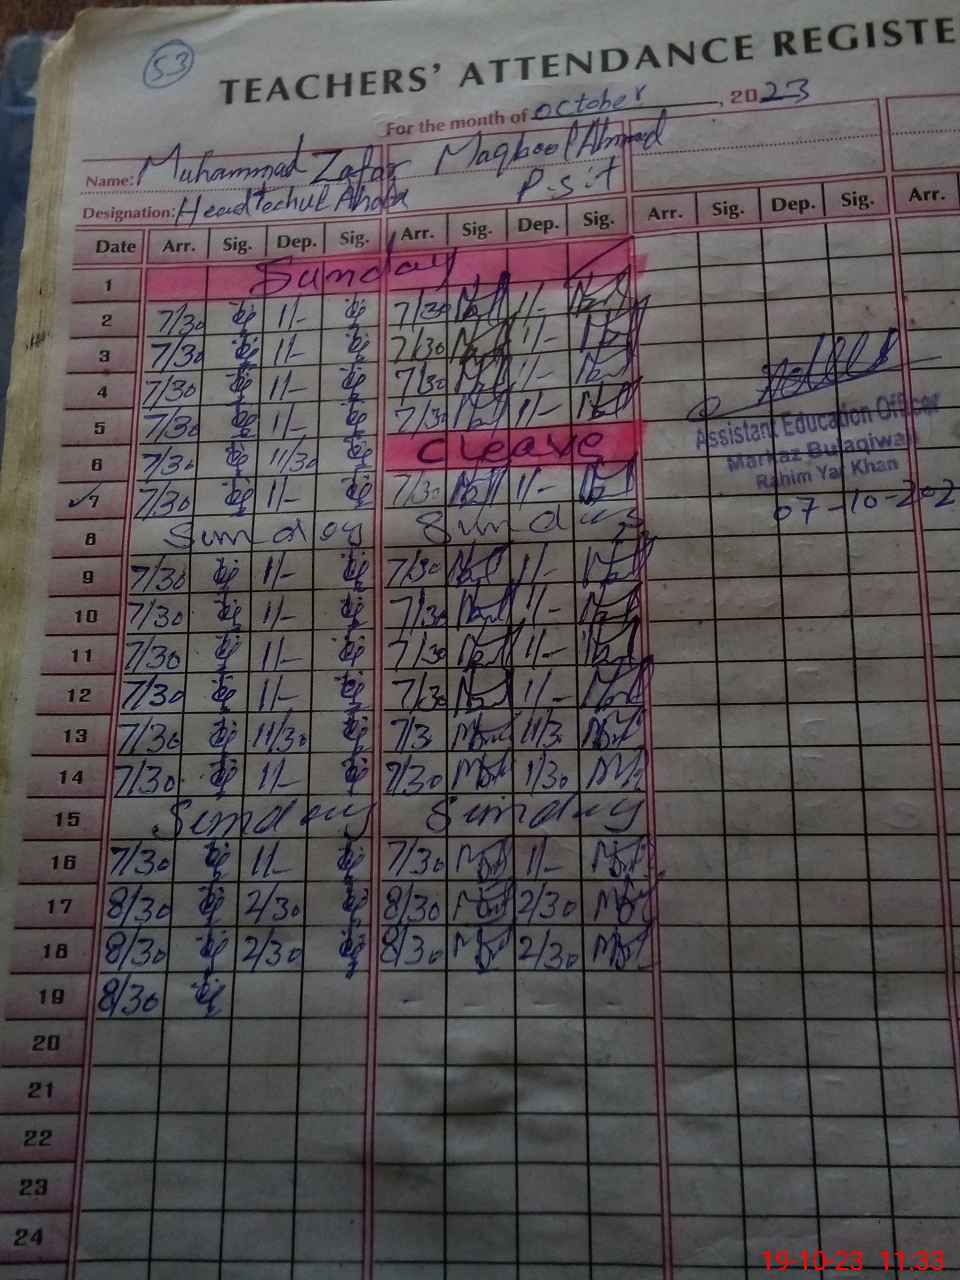 53
TEACHERS' ATTENDANCE REGISTE
For the month of October, 2023
Name: Muhammad Zafar Maqbool Ahmad
Designation: Head P.S.i.T
Date Arr. Sig. Dep. Sig. Arr. Sig. Dep. Sig. Arr. Sig. Dep. Sig. Arr.
1 Sunday
2 7/30 1/- 7/30 1/-
3 7/30 1/- 7/30 1/-
4 7/30 1/- 7/30 1/-
5 7/30 1/- 7/30 1/-
6 7/30 11/30 Cleave
7 7/30 1/- 7/30 1/-
8 Sunday Sunday
9 7/30 1/- 7/30 1/-
10 7/30 1/- 7/30 1/-
11 7/30 1/- 7/30 1/-
12 7/30 1/- 7/30 1/-
13 7/30 11/30 7/3 11/3
14 7/30 1/- 7/30 1/30
15 Sunday Sunday
16 7/30 1/- 7/30 1/-
17 8/30 2/30 8/30 2/30
18 8/30 2/30 8/30 2/30
19 8/30
20
21
22
23
24
Assistant Education Officer
Markaz Bulaqiwali
Rahim Yar Khan
07-10-202
19-10-23 11:33